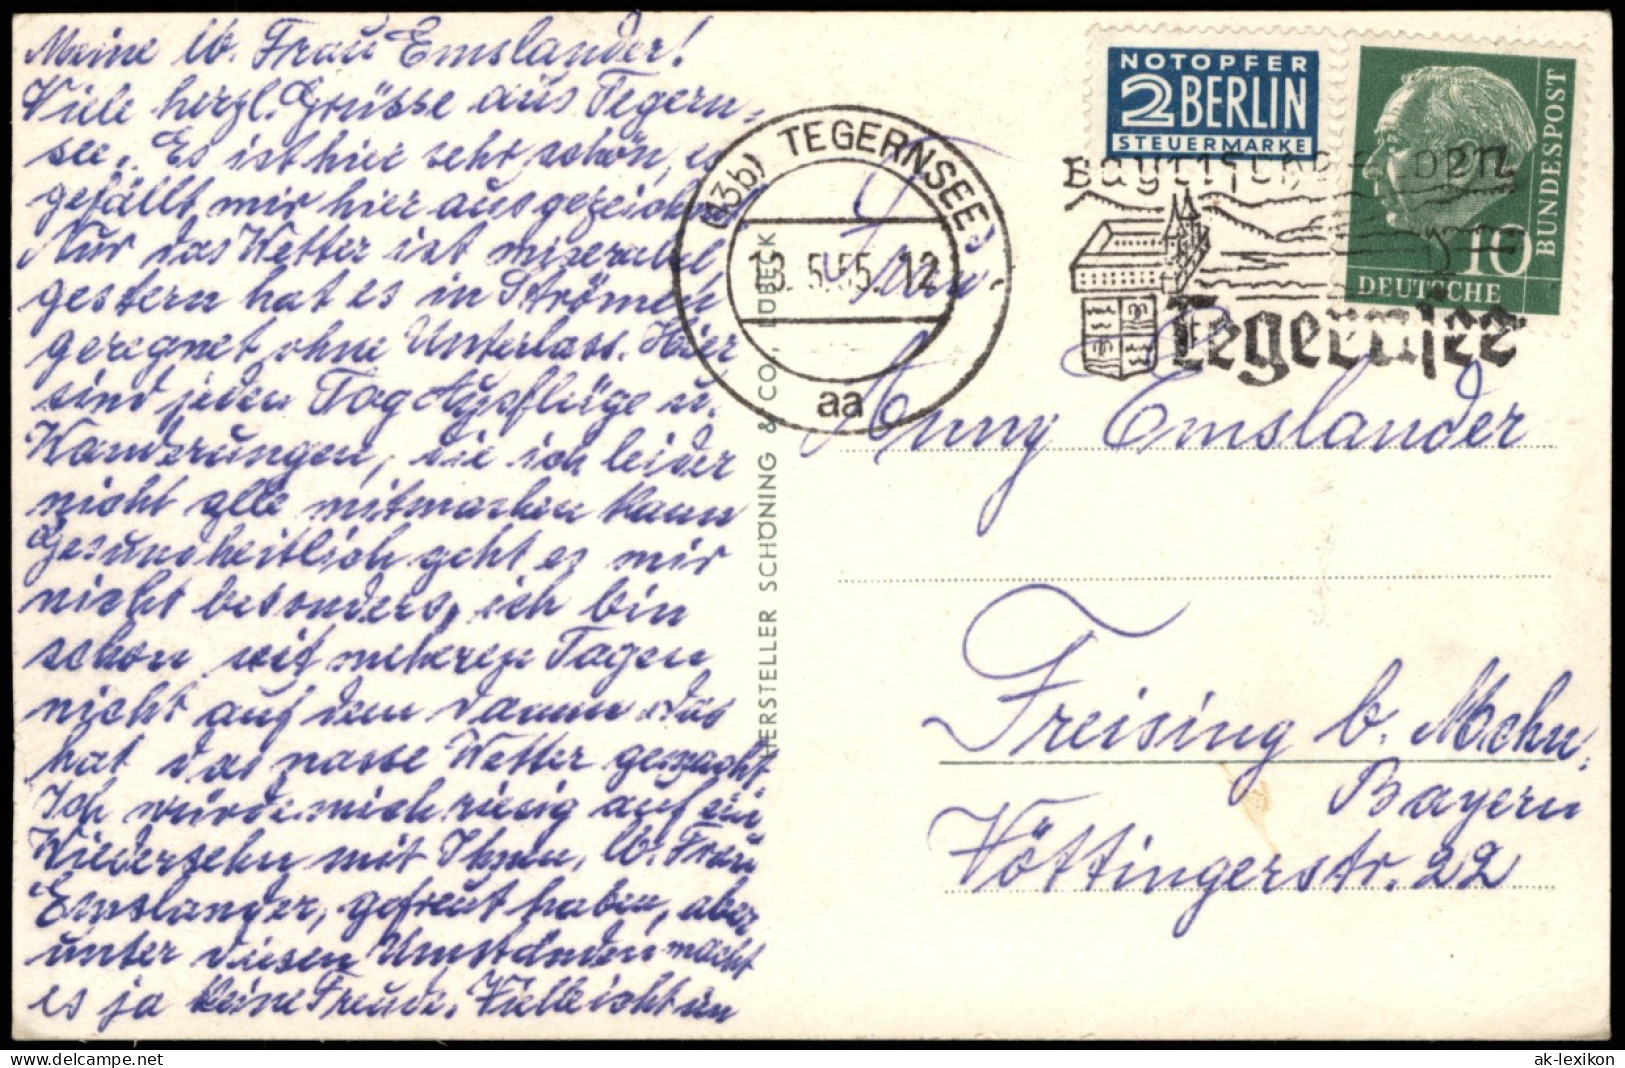 Meine lb. Frau Emslander!
Viele herzl. Grüsse aus Tegern-
see. Es ist hier sehr schön, es
gefällt mir hier ausgezeichn
Nur das Wetter ist miserabel,
gestern hat es in Strömen
geregnet ohne Unterlass. Hier
sind jeden Tag Ausflüge u.
Wanderungen, die ich leider
nicht alle mitmachen kann
Gesundheitlich geht es mir
nicht besonders, ich bin
schon seit mehreren Tagen
nicht auf dem Damm das
hat das nasse Wetter gemacht.
Ich würde mich riesig auf ein
Wiedersehn mit Ihnen, lb. Frau
Emslander, gefreut haben, aber
unter diesen Umständen macht
es ja keine Freude. Vielleicht im
HERSTELLER SCHÖNING & CO., LÜBECK
(13b) TEGERNSEE
13.5.55.12
aa
NOTOPFER
2 BERLIN
STEUERMARKE
DEUTSCHE
BUNDESPOST
10
Tegernsee
Frau
Anny Emslander
Freising b. Mchn.
Bayern
Vöttingerstr. 22
ak-lexikon
delcampe.net